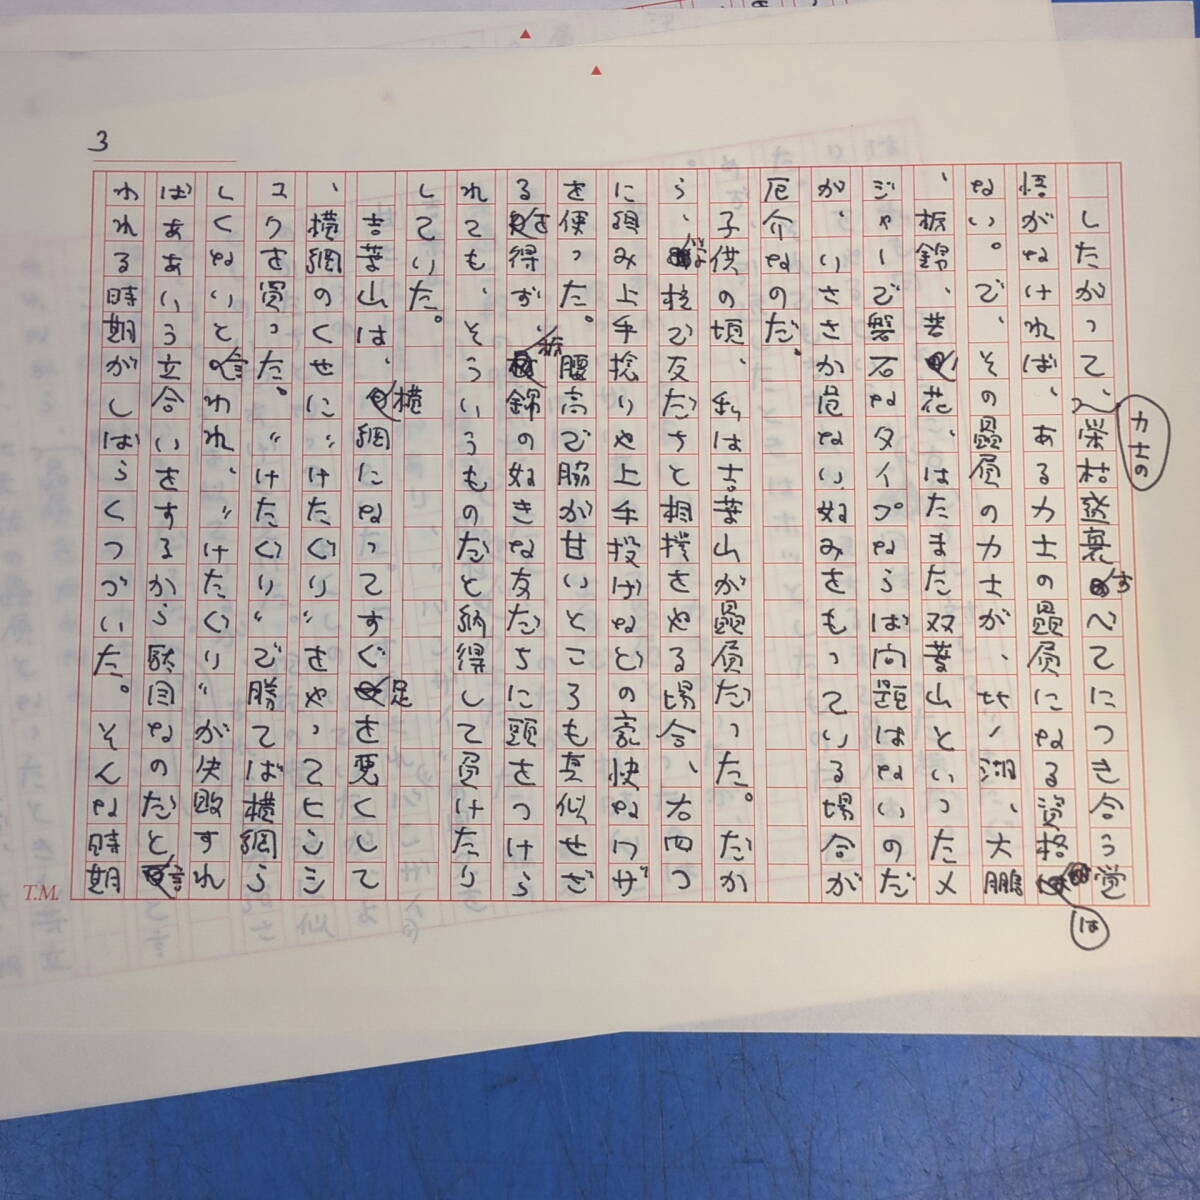 3
したがって、力士の栄枯盛衰すべてにつき合う覚
悟がなければ、ある力士の贔屓になる資格は
ない。で、その贔屓の力士が、北ノ湖、大鵬
、栃錦、若花、はたまた双葉山といったメ
ジャーで磐石なタイプならば問題はないのだ
が、いささか危ない妙みをもっている場合が
厄介なのだ。
子供の頃、私は吉葉山が贔屓だった。だか
ら、学校で友だちと相撲をやる場合、右四つ
に組み上手捻りや上手投げなどの豪快なワザ
を使った。腰高で脇が甘いところも真似せざ
るを得ず、栃錦の好きな友だちに頭をつけら
れても、そういうものだと納得して負けたり
していた。
吉葉山は、横綱になってすぐ足を悪くして
、横綱のくせに〝けたぐり〟をやってヒンシ
ュクを買った。〝けたぐり〟で勝てば横綱ら
しくないと言われ、〝けたぐり〟が失敗すれ
ばああいう立合いをするから駄目なのだと言
われる時期がしばらくつづいた。そんな時期
T.M.